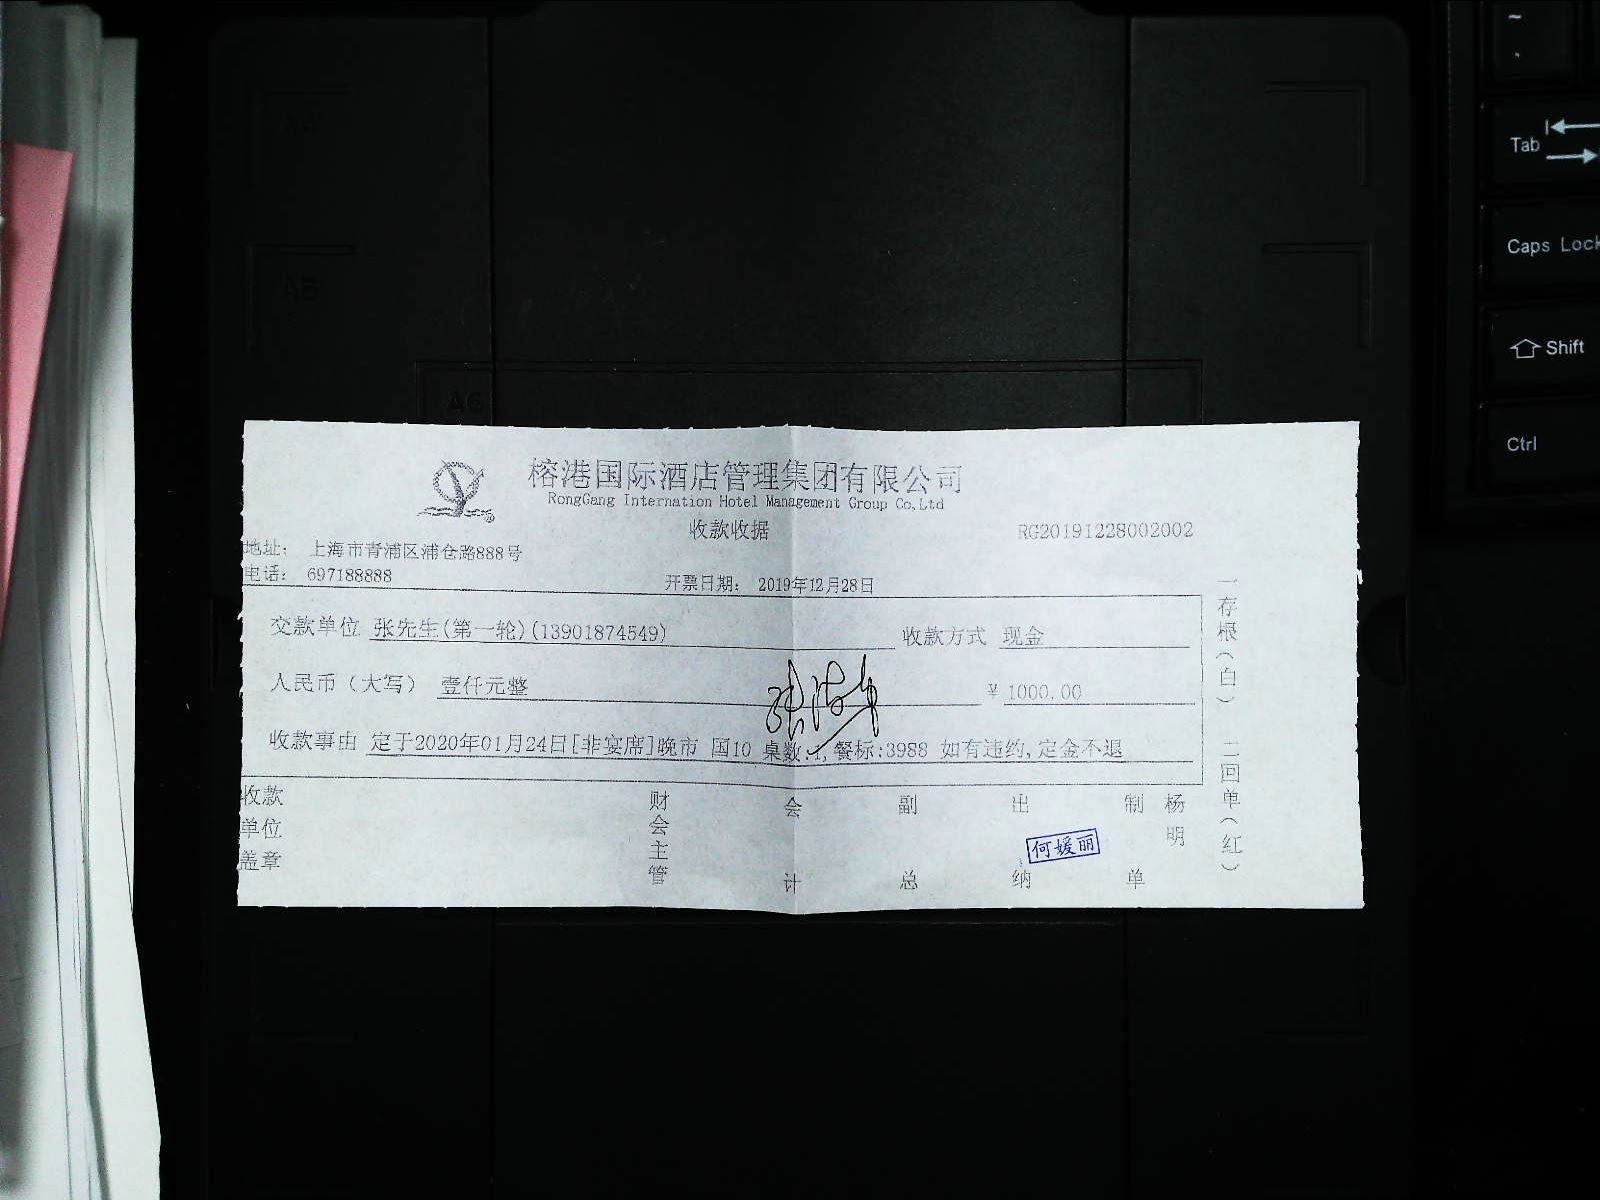 榕港国际酒店管理集团有限公司
RongGang Internation Hotel Management Group Co,Ltd
收款收据
RG20191228002002
地址： 上海市青浦区浦仓路888号
电话： 697188888
开票日期： 2019年12月28日
交款单位 张先生(第一轮)(13901874549) 收款方式 现金
人民币（大写） 壹仟元整 ￥ 1000.00
收款事由 定于2020年01月24日[非宴席]晚市 国10 桌数:1, 餐标:3988 如有违约,定金不退
收款单位盖章 财会主管 会计 副总 出纳 何媛丽 制单 杨明
一存根（白） 二回单（红）
A5
A6
~
Tab
Caps Lock
Shift
Ctrl